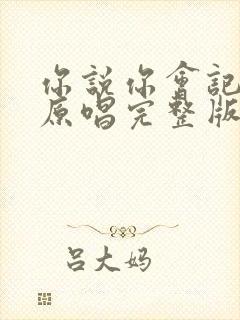 你說你會記
原唱完整版
吕大妈